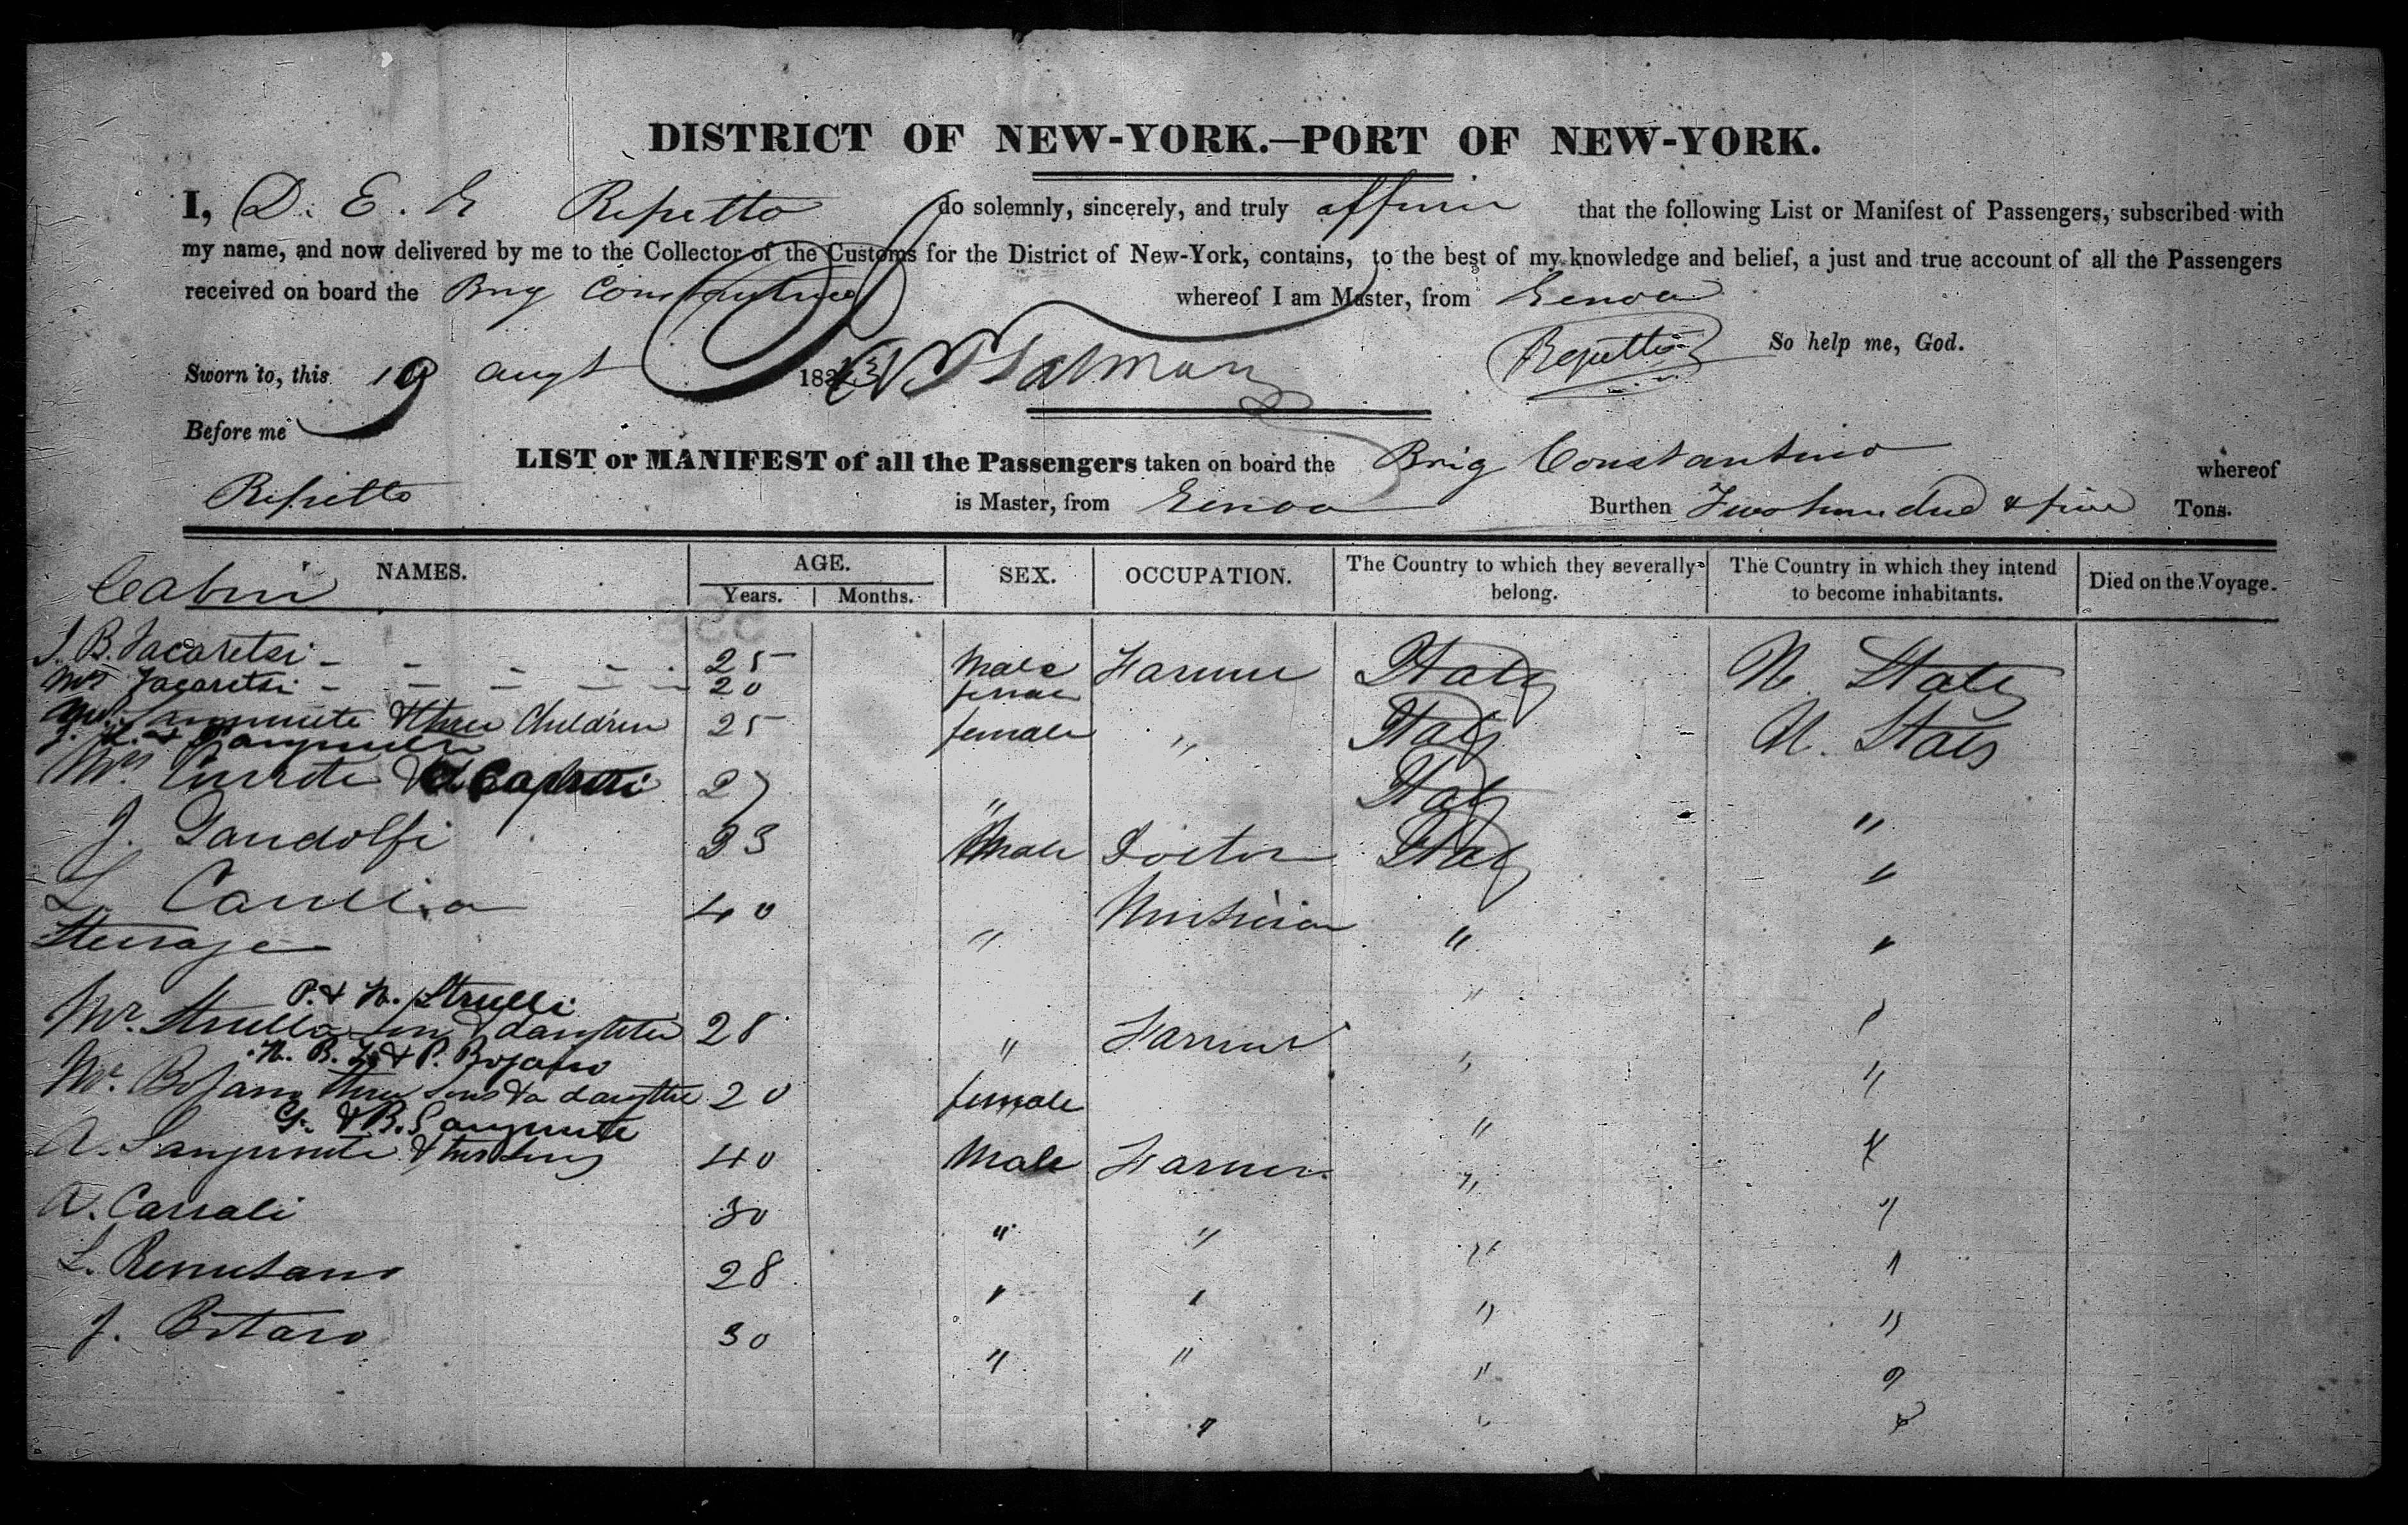 DISTRICT OF NEW-YORK.—PORT OF NEW-YORK.
I, D. E. G Repetto do solemnly, sincerely, and truly affirm that the following List or Manifest of Passengers, subscribed with
my name, and now delivered by me to the Collector of the Customs for the District of New-York, contains, to the best of my knowledge and belief, a just and true account of all the Passengers
received on board the Brig Constantino whereof I am Master, from Genoa
Repetto So help me, God.
Sworn to, this 19 augt 18
Before me
LIST or MANIFEST of all the Passengers taken on board the Brig Constantino whereof
Repetto is Master, from Genoa Burthen Two hundred & five Tons.
NAMES. AGE. SEX. OCCUPATION. The Country to which they severally belong. The Country in which they intend to become inhabitants. Died on the Voyage.
Years. Months.
Cabin
J. B. Jacaretsi - - - - - 25 Male Farmer Italy U. States
Mrs Jacaretsi - - - - - 20 female
& three Children 25 female " Italy U. States
Mrs & 27 " Italy "
J. Gandolfi 33 Male Doctor Italy "
L. 40 " Musician " "
Steerage
P. & N. Strulli
Mr. Strullo son & daughter 28 " Farmer " "
N. B. J. & P. Bojano
Mr. Bojano three sons & a daughter 20 female " "
G. & B. Sanguinete
A. Sanguinete & two sons 40 Male Farmer " "
A. Carrali 30 " " " "
L. 28 " " " "
J. Botaro 30 " " " "